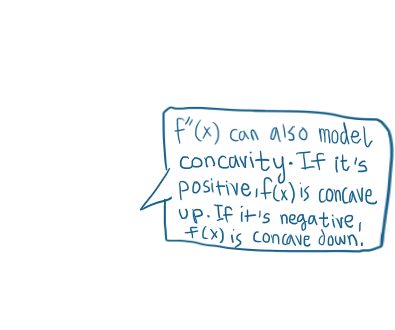 f"(x) can also model
concavity. If it's
positive, f(x) is concave
up. If it's negative,
f(x) is concave down.